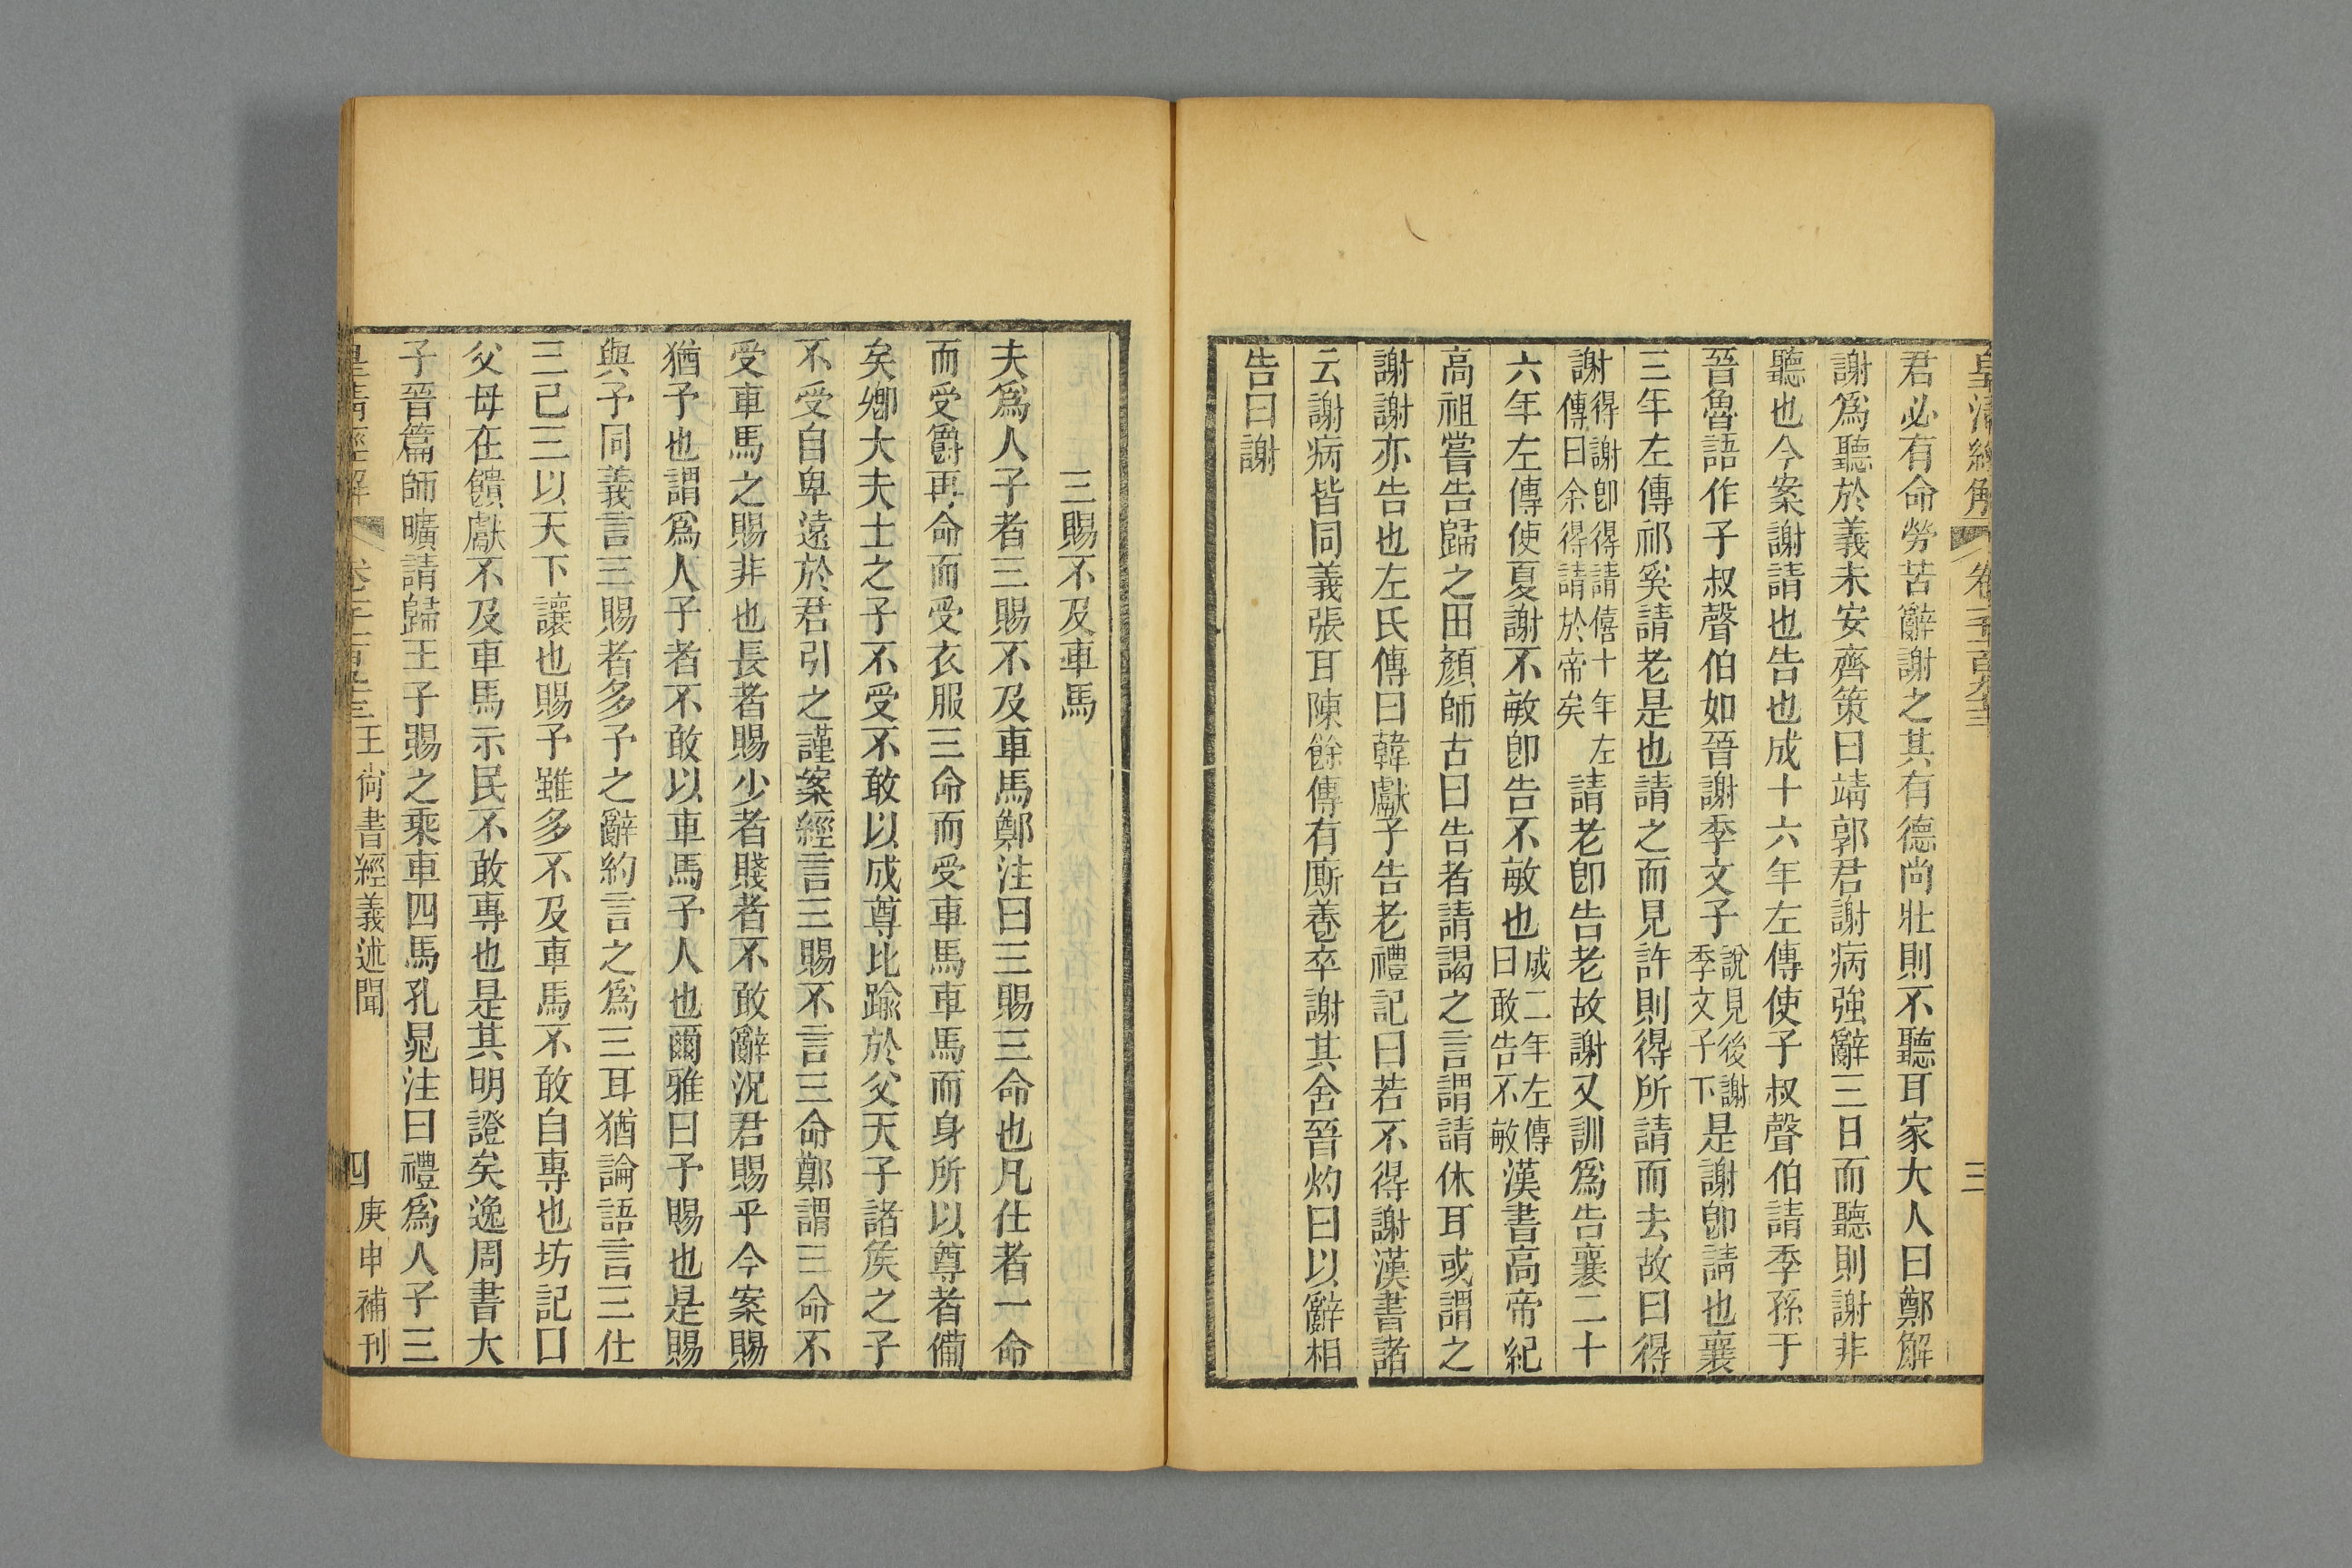 皇清經解 卷一千百 三
君必有命勞苦辭謝之其有德尚壯則不聽耳家大人曰鄭解
謝爲聽於義未安齊策曰靖郭君謝病強辭三日而聽則謝非
聽也今案謝請也告也成十六年左傳使子叔聲伯請季孫于
晉魯語作子叔聲伯如晉謝季文子說見後謝季文子下是謝卽請也襄
三年左傳祁奚請老是也請之而見許則得所請而去故曰得
謝得謝卽得請僖十年左傳曰余得請於帝矣請老卽告老故謝又訓爲告襄二十
六年左傳使夏謝不敏卽告不敏也成二年左傳曰敢告不敏漢書高帝紀
高祖嘗告歸之田顏師古曰告者請謁之言謂請休耳或謂之
謝謝亦告也左氏傳曰韓獻子告老禮記曰若不得謝漢書諸
云謝病皆同義張耳陳餘傳有廝養卒謝其舍晉灼曰以辭相
告曰謝
三賜不及車馬
夫爲人子者三賜不及車馬鄭注曰三賜三命也凡仕者一命
而受爵再命而受衣服三命而受車馬車馬而身所以尊者備
矣卿大夫士之子不受不敢以成尊比踰於父天子諸矦之子
不受自卑遠於君引之謹案經言三賜不言三命鄭謂三命不
受車馬之賜非也長者賜少者賤者不敢辭況君賜乎今案賜
猶予也謂爲人子者不敢以車馬予人也爾雅曰予賜也是賜
與予同義言三賜者多予之辭約言之爲三耳猶論語言三仕
三已三以天下讓也賜予雖多不及車馬不敢自專也坊記曰
父母在饋獻不及車馬示民不敢專也是其明證矣逸周書大
子晉篇師曠請歸王子賜之乘車四馬孔晁注曰禮爲人子三
皇清經解 卷千百 王尚書經義述聞 四 庚申補刊